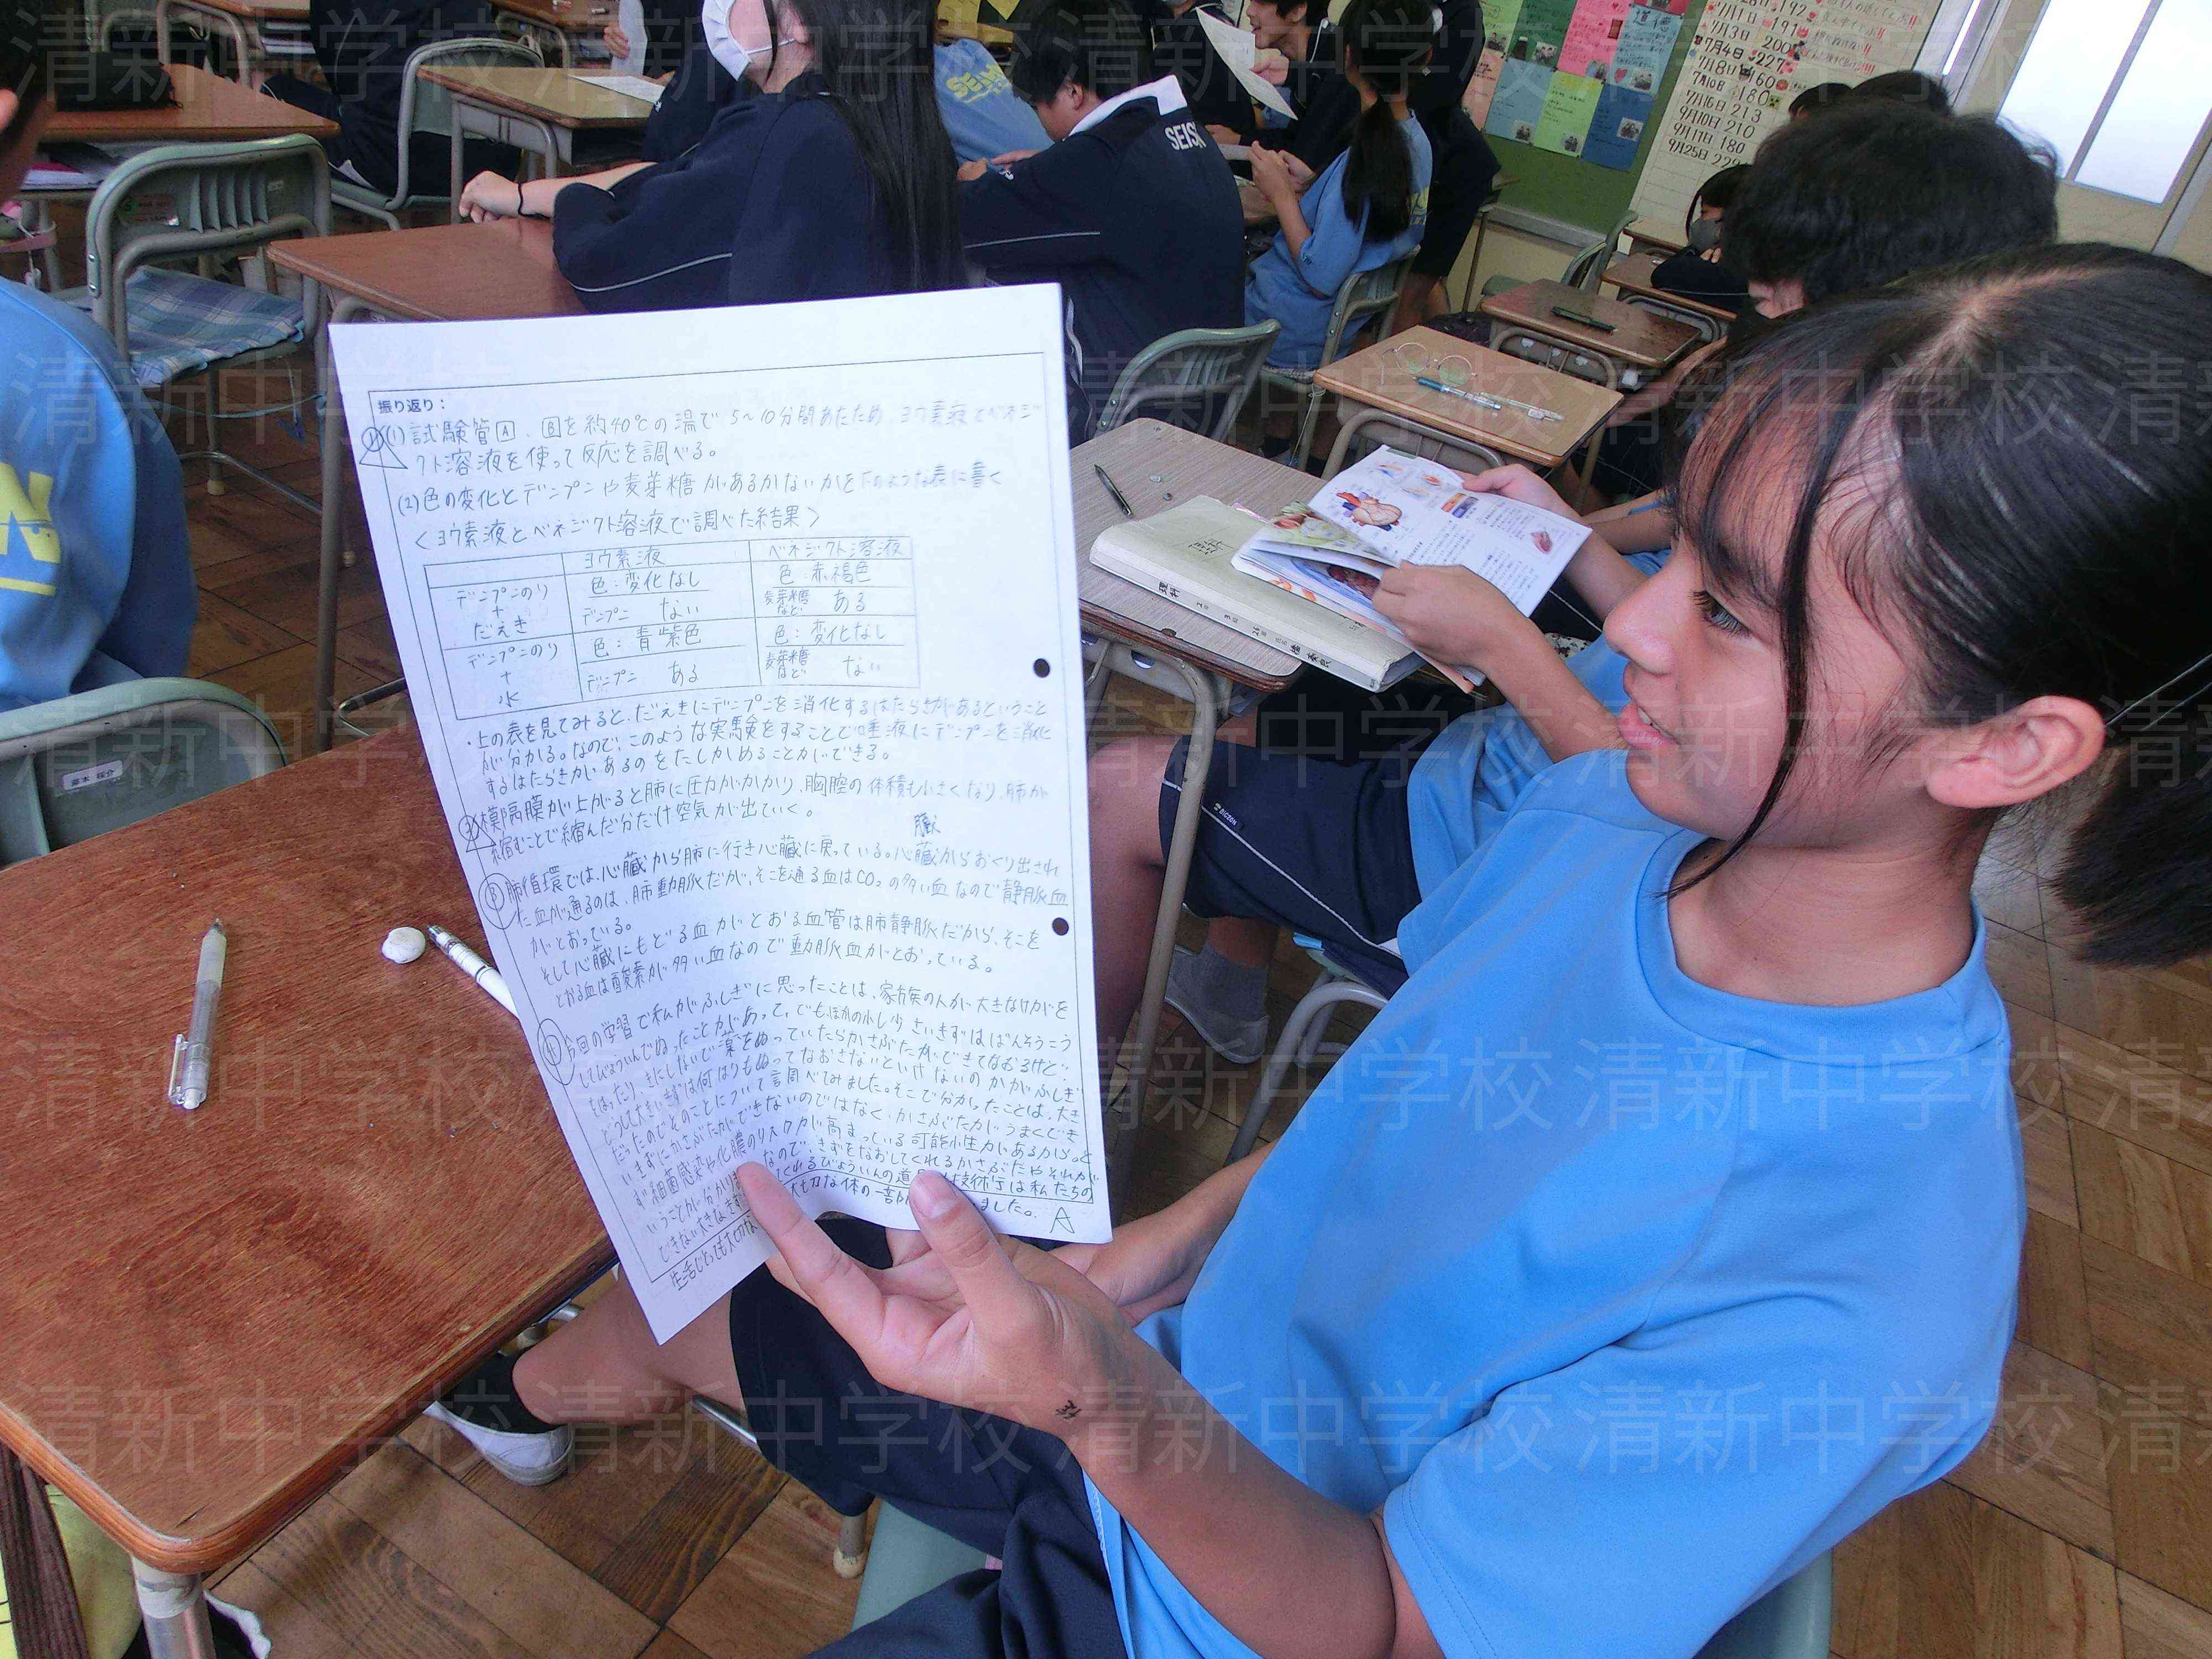 振り返り：
(1)試験管A、Bを約40℃の湯で5～10分間あたため ヨウ素液とベネジ
クト溶液を使って反応を調べる。
(2)色の変化とデンプンや麦芽糖があるかないかを下のような表に書く
〈ヨウ素液とベネジクト溶液で調べた結果〉
ヨウ素液 ベネジクト溶液
デンプンのり + だえき 色：変化なし 色：赤褐色
デンプン ない 麦芽糖など ある
デンプンのり + 水 色：青紫色 色：変化なし
デンプン ある 麦芽糖など ない
・上の表を見てみると、だえきにデンプンを消化するはたらきがあるということ
が分かる。なので、このような実験をすることで唾液にデンプンを消化
するはたらきがあるのをたしかめることができる。
横隔膜が上がると肺に圧力がかかり、胸腔の体積も小さくなり、肺が
縮むことで縮んだ分だけ空気が出ていく。
臓
肺循環では、心臓から肺に行き心臓に戻っている。心臓からおくり出され
た血が通るのは、肺動脈だが、そこを通る血はCO₂の多い血なので静脈血
がとおっている。
そして心臓にもどる血がとおる血管は肺静脈だから、そこを
とおる血は酸素が多い血なので動脈血がとおっている。
今回の学習で私がふしぎに思ったことは、家族の人が大きなけがを
してびょういんでぬったことがあって、でも、ほかの小し少さいきずはばんそうこう
をはったり、きにしないで薬をぬっていたらかさぶたができてなおるけど、
どうして大きいきずは何はりもぬってなおさないといけないのかがふしぎ
だったのでそのことについて調べてみました。そこで分かったことは、大き
いきずにかさぶたができないのではなく、かさぶたがうまくでき
ず細菌感染や化膿のリスクが高まっている可能性があるからと
いうことが分かりま なので、きずをなおしてくれるかさぶたやそれが
できない大きなきず くれるびょういんの道 技術は私たちの
生活にとっても大切な 大切な体の一部 ました。
A
SEIS
道徳
7月1日 191
7月3日 200
7月4日 227
7月8日 160
7月10日 180
7月16日 213
9月10日 210
9月17日 180
9月25日 229
理科
清新中学校